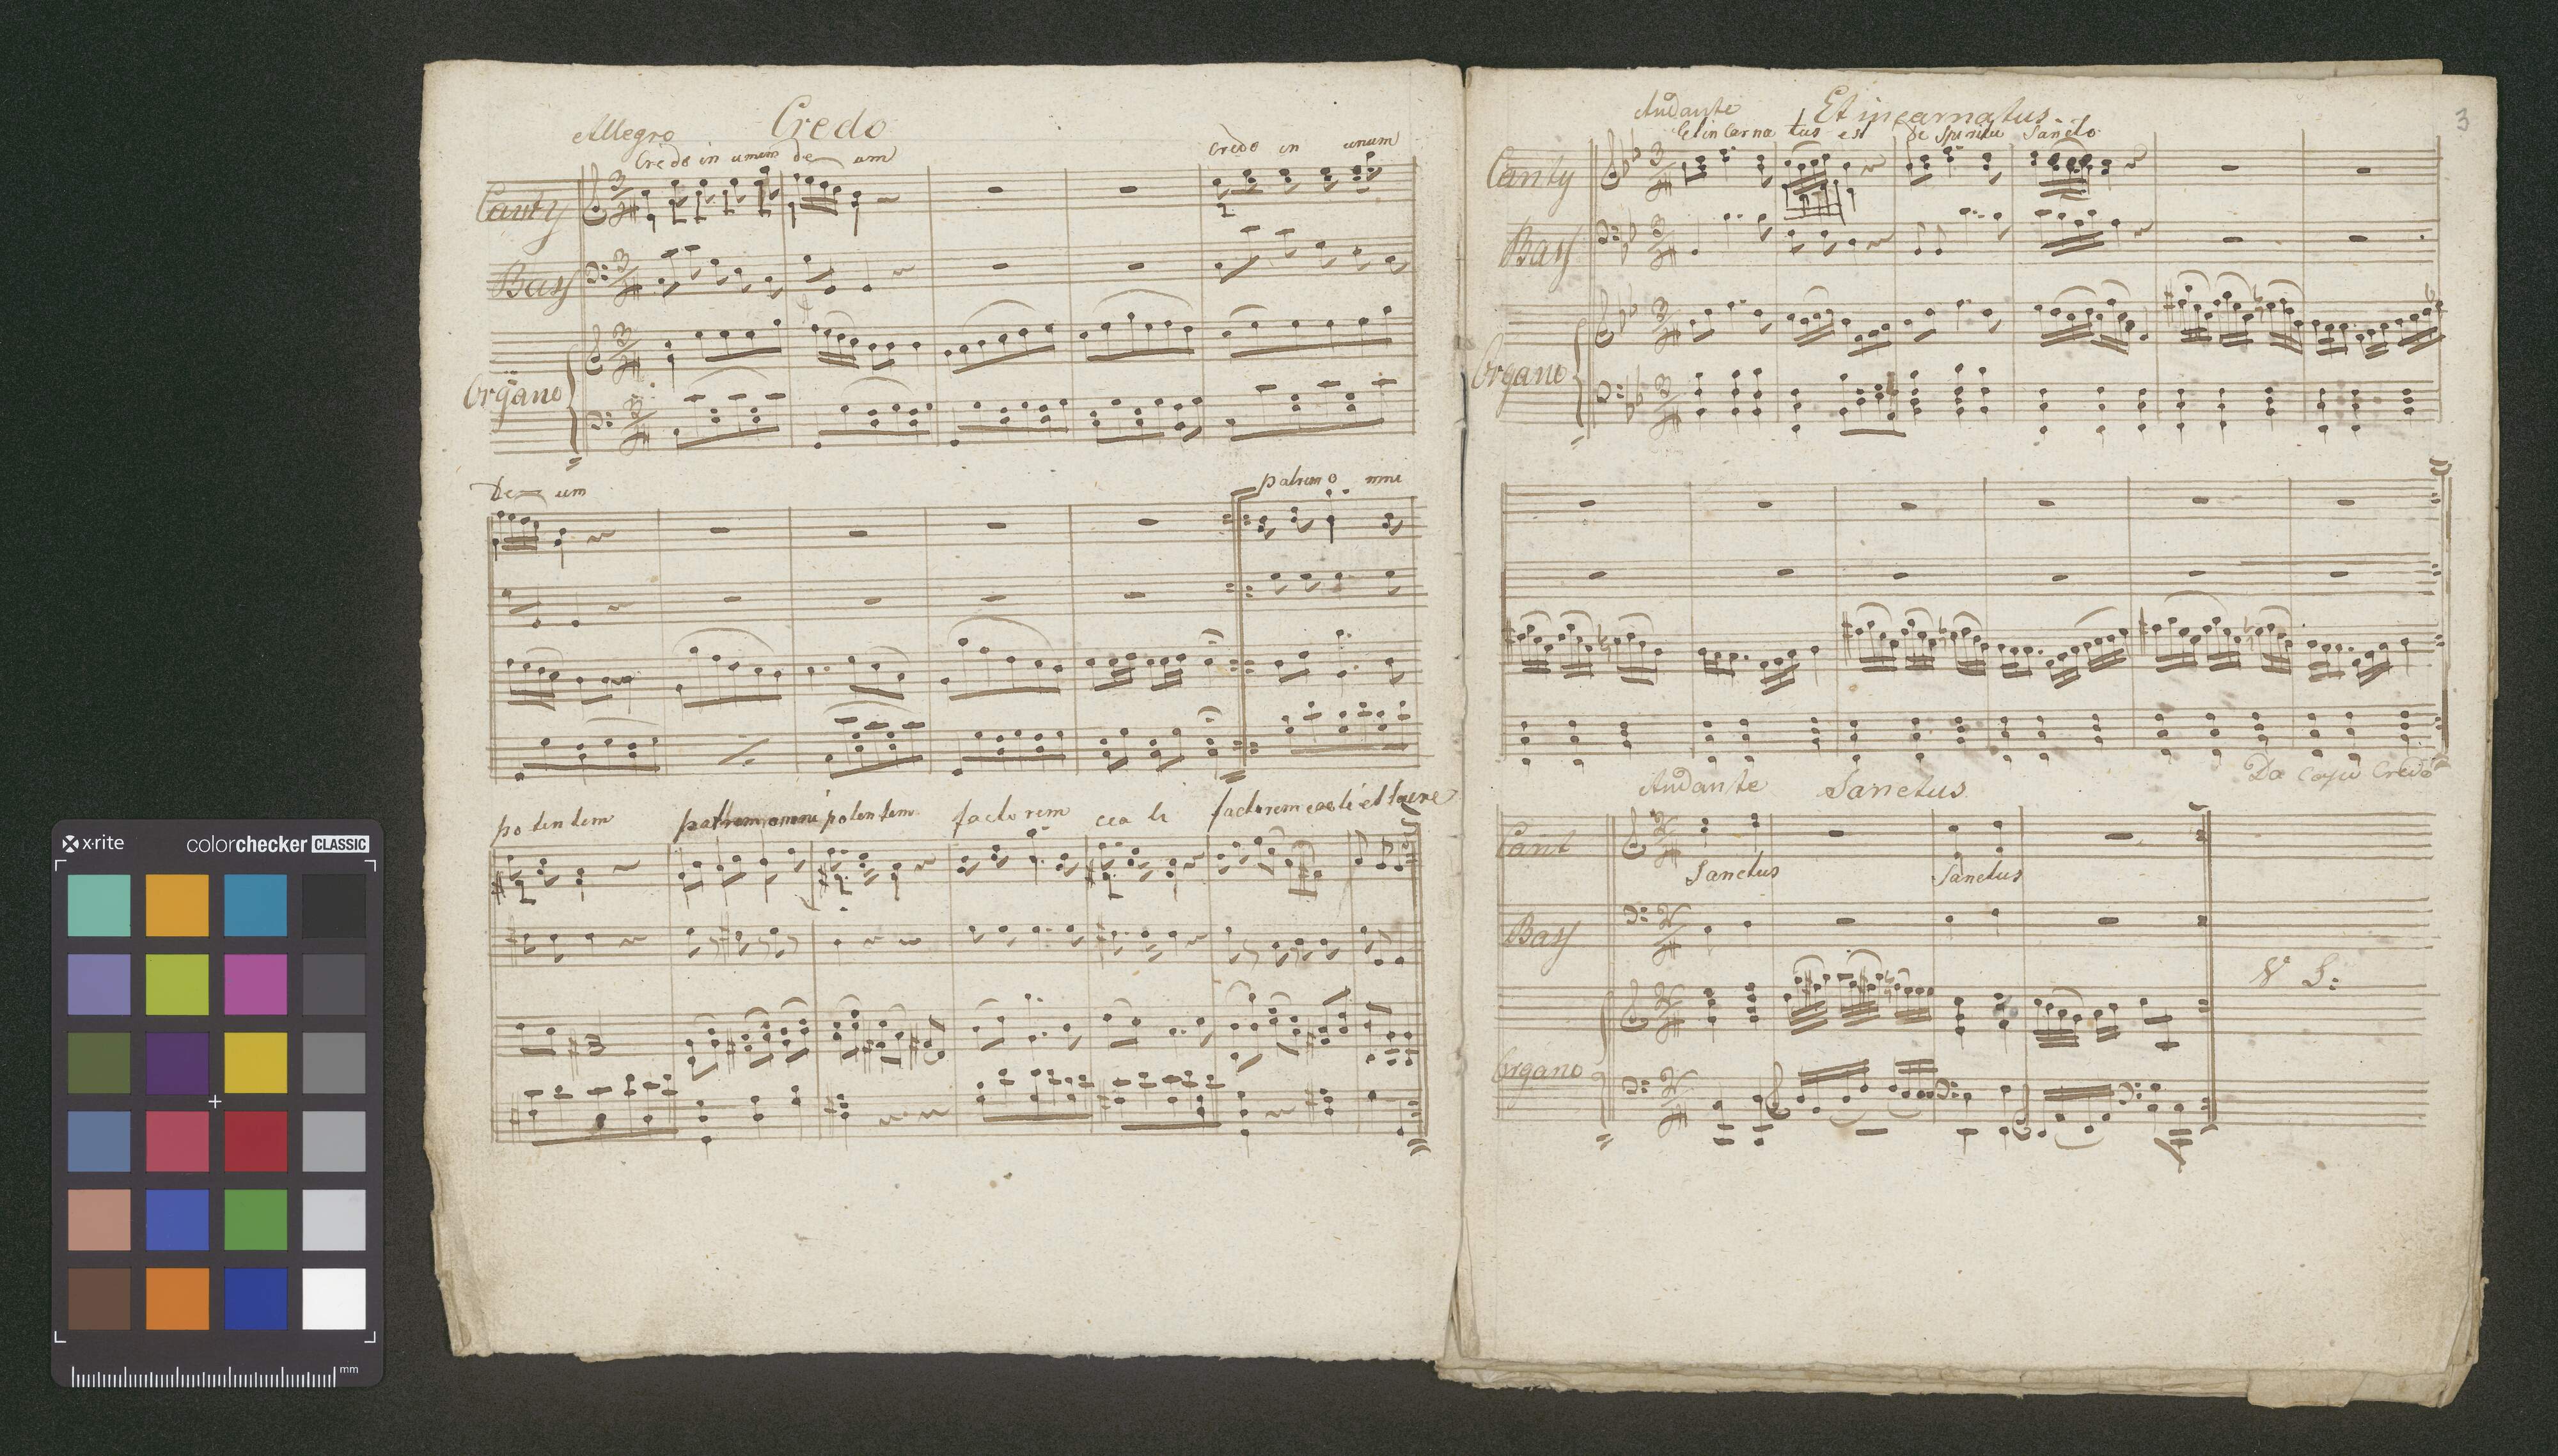 x-rite colorchecker CLASSIC
mm
Credo
Allegro
Credo in unum de um
credo in unum
Canty
Bass
Organo
De um
patrem o mni
po ten tem patrem omni potentem facto rem coe li factorem coeli et terre
3
Et incarnatus
Andante
Et in carna tus est de Spiritu Sancto
Canty
Bass
Organo
Da Capo Credo
Andante Sanctus
Cant
Sanctus Sanctus
Bass
V S:
Organo